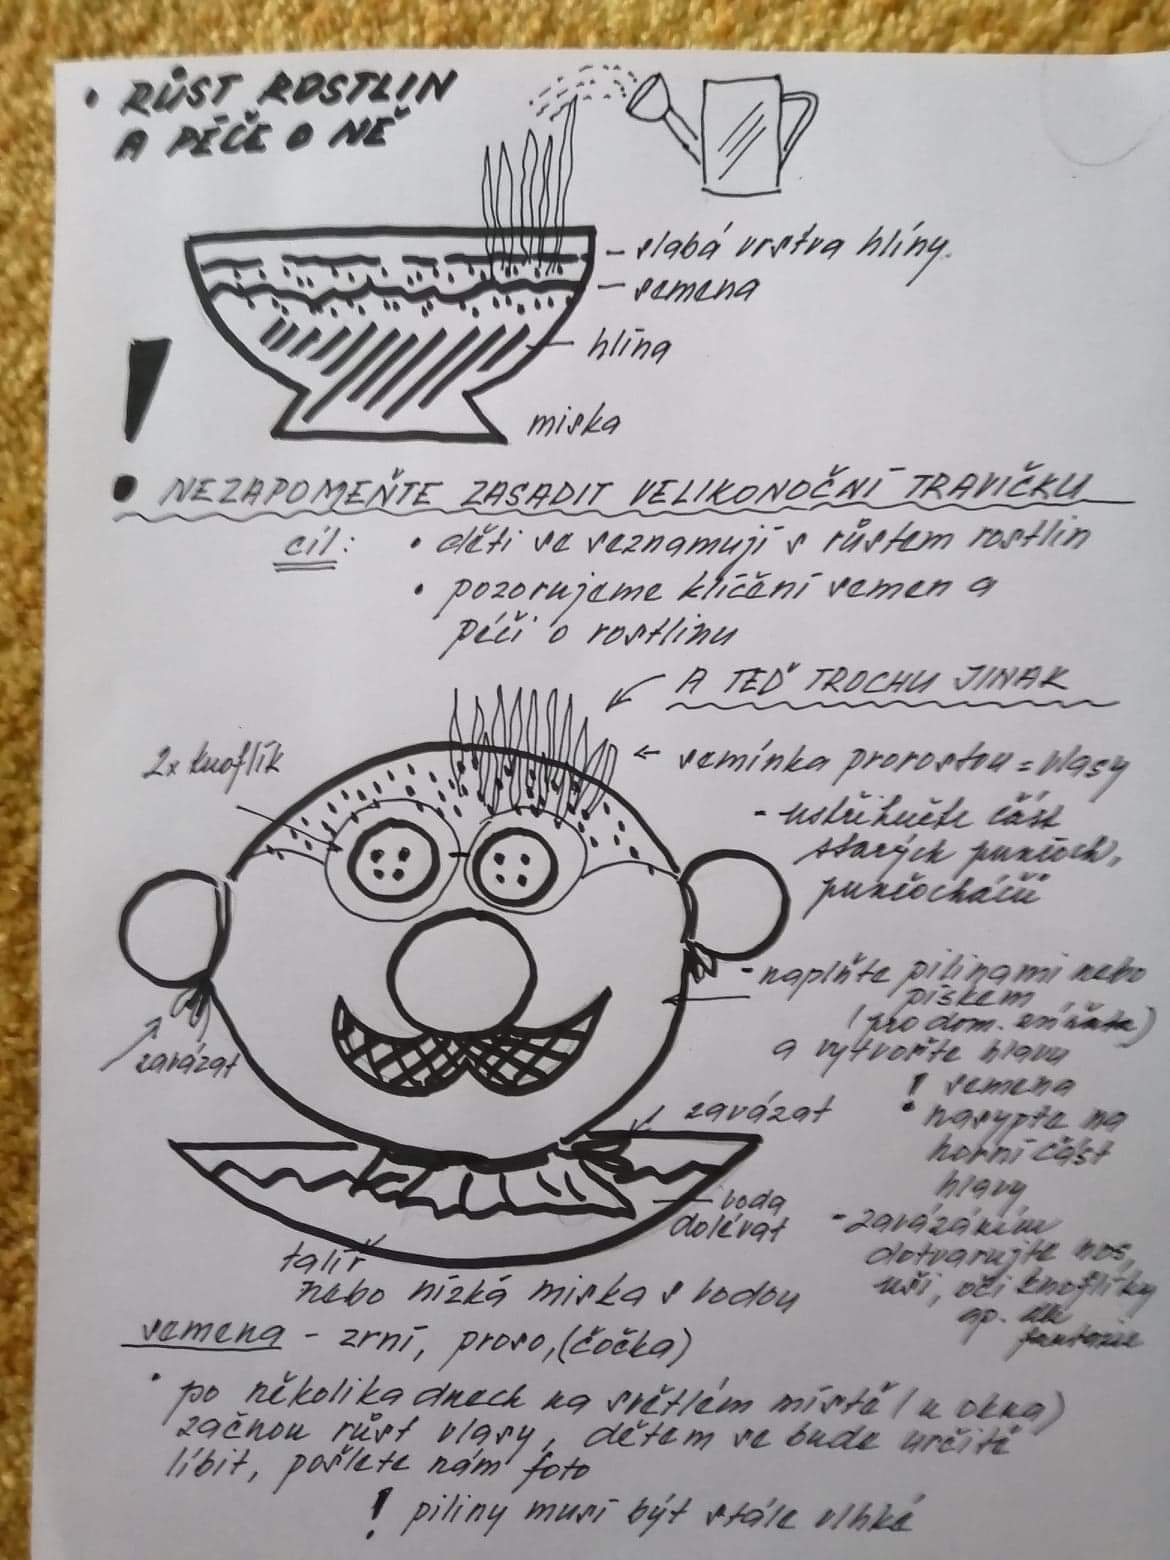 • RŮST ROSTLIN
A PÉČE O NĚ
- slabá vrstva hlíny.
- semena
hlína
miska
• NEZAPOMEŇTE ZASADIT VELIKONOČNÍ TRAVIČKU
cíl: • děti se seznamují s růstem rostlin
• pozorujeme klíčení semen a
péči o rostlinu
A TEĎ TROCHU JINAK
2x knoflík
← semínka prorostou = vlasy
- ustřihněte část
starých punčoch,
punčocháčů
- naplňte pilinami nebo
pískem
(pro dom. zvířata)
a vytvořte hlavu
! semena
nasypte na
horní část
hlavy
zavázat
zavázat
voda
dolévat
- zavázáním
dotvarujte nos,
uši, oči knoflíky
ap. dle
fantazie
talíř
nebo nízká miska s vodou
semena - zrní, proso, (čočka)
• po několika dnech na světlém místě (u okna)
začnou růst vlasy, dětem se bude určitě
líbit, pošlete nám foto
! piliny musí být stále vlhké